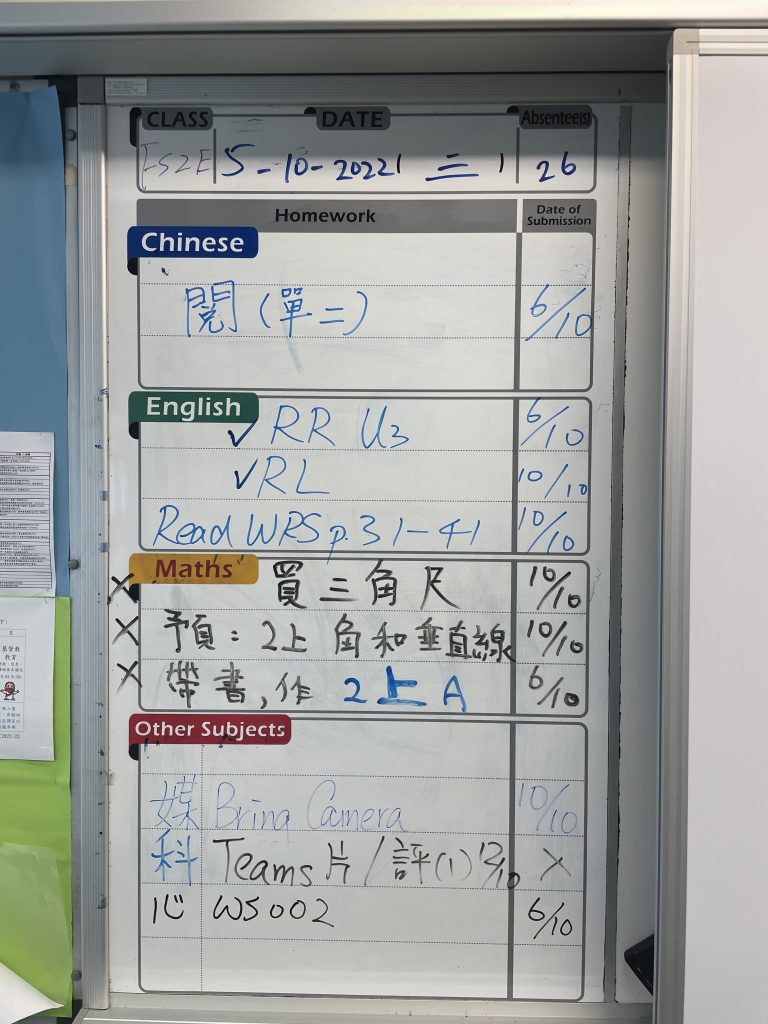 CLASS DATE Absentee(s)
5-10-2022 三 26
Homework Date of Submission
Chinese
閱（單二） 6/10
English
✓ RR U3 6/10
✓ RL 10/10
Read WRS p.31-41 10/10
Maths
× 買三角尺 10/10
× 予頁：2上 角和垂直線 10/10
× 帶書,作 2上A 6/10
Other Subjects
媒 Bring Camera 10/10
科 Teams片/評(1) 12/10 ×
心 WS002 6/10